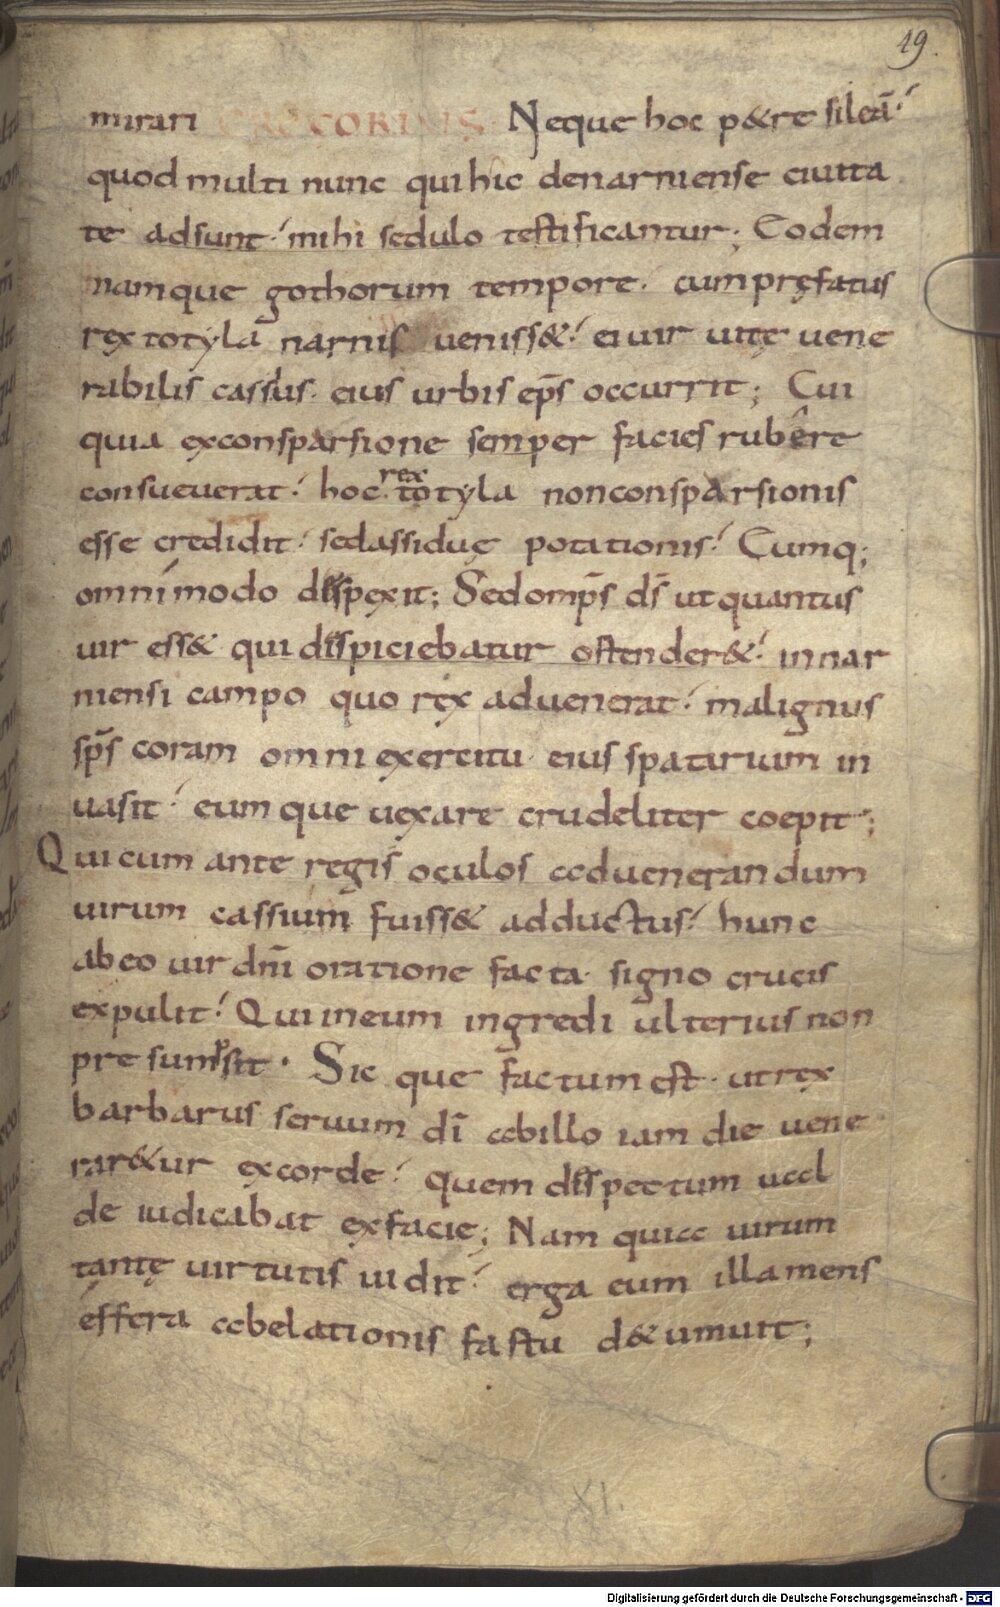 49.
mirari GREGORIUS. Neque hoc p&re sileā.
quod multi nunc qui hic denarniense ciuita
te adsunt. mihi sedulo testificantur; Eodem
namque gothorum tempore. cum pręfatus
rex totyla narnis ueniss&. ei uir uitę uene
rabilis cassius. eius urbis ep̄s occurrit; Cui
quia exconsparsione semper facies rubere
consueuerat. hoc rex totyla nonconsparsionis
esse credidit. sedassiduę potationis. Cumq;
omnimodo dispexit; Sed omp̄s d̄s ut quantus
uir ess& qui dispiciebatur ostender&. innar
niensi campo quo rex aduenerat. malignus
sp̄s coram omni exercitu eius spatarium in
uasit. eumque uexare crudeliter coepit;
Qui cum ante regis oculos aduenerandum
uirum cassium fuiss& adductus. hunc
abeo uir dn̄i oratione facta. signo crucis
expulit. Qui ineum ingredi ulterius non
presumpsit. Sicque factum est. ut rex
barbarus seruum dī abillo iam die uene
rar&ur excorde. quem dispectum ual
de iudicabat exfacie; Nam quia uirum
tantę uirtutis uidit. erga eum illa mens
effera abelationis fastu d&umuit;
XI.
Digitalisierung gefördert durch die Deutsche Forschungsgemeinschaft - DFG